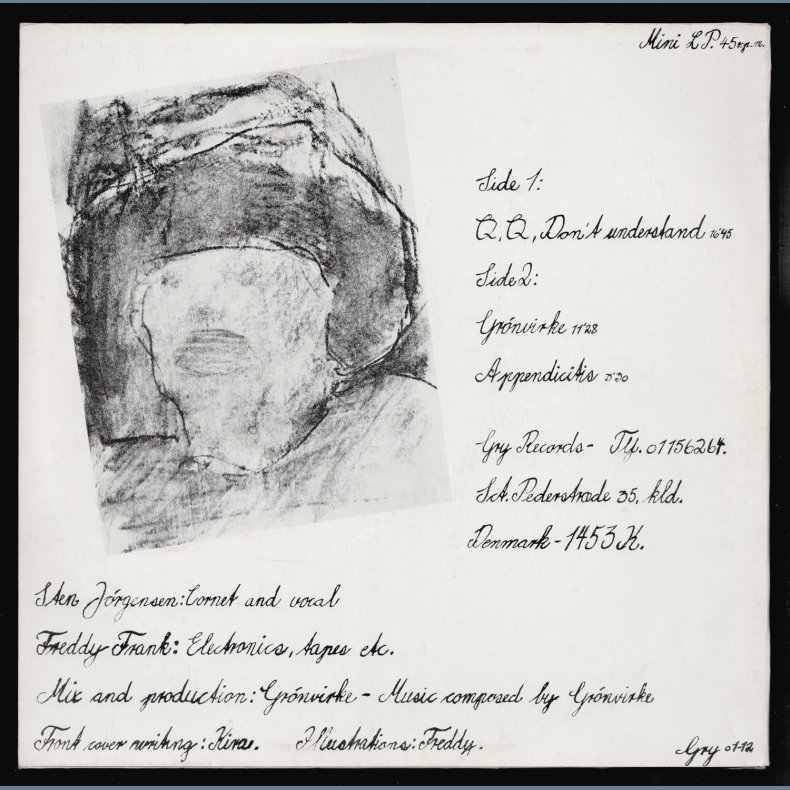 Mini LP. 45 r.p.m.
Side 1:
Q, Q, Don't understand 16'45
Side 2:
Grónvirke 11'28
Appendicitis 3'30
-Gry Records- Tlf. 01156264.
Sct. Pederstræde 35, kld.
Denmark - 1453 K.
Sten Jórgensen: Cornet and vocal
Freddy Frank: Electronics, tapes etc.
Mix and production: Grónvirke - Music composed by Grónvirke
Front cover writing: Kira. Illustrations: Freddy.
Gry 01-12